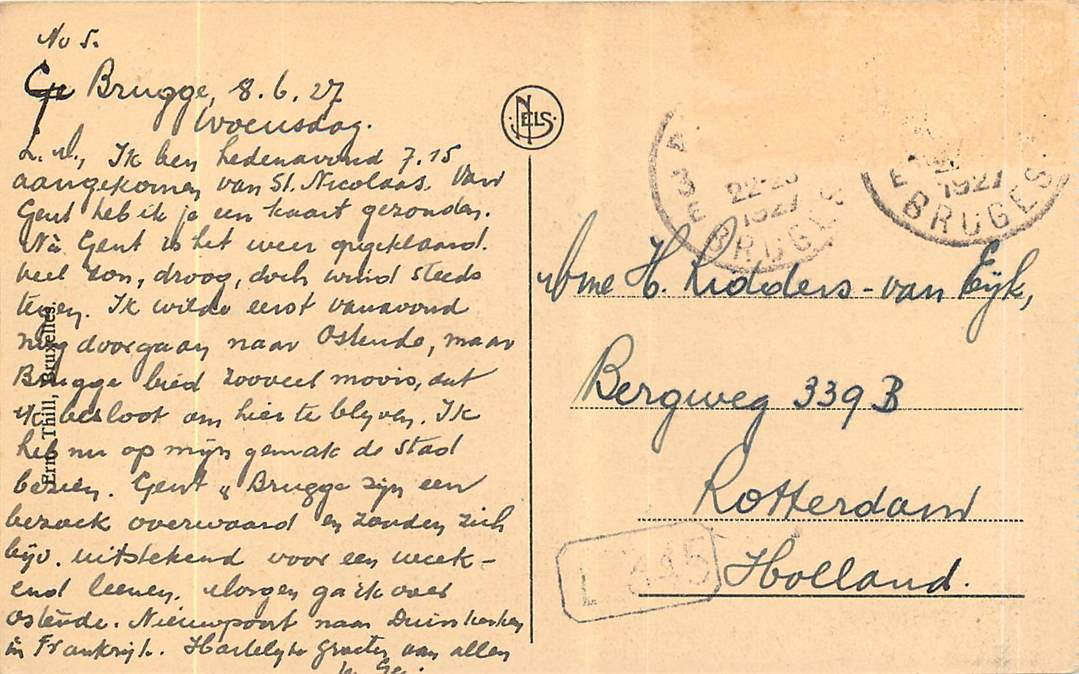 No 5.
Brugge, 8.6.27
Woensdag.
L. v., Ik ben hedenavond 7.15
aangekomen van St. Nicolaas. Van
Gent heb ik je een kaart gezonden.
Nà Gent is het weer opgeklaard.
veel zon, droog, doch wind steeds
tegen. Ik wilde eerst vanavond
nog doorgaan naar Ostende, maar
Brugge bied zooveel moois, dat
ik besloot om hier te blyven. Ik
heb nu op mijn gemak de stad
bezien. Gent „ Brugge zijn een
bezoek overwaard en zouden zich
bijv. uitstekend voor een week-
end leenen. Morgen ga ik over
Ostende. Nieuwpoort naar Duinkerken
in Frankrijk. Hartelyke groeten aan allen
Ern. Thill, Bruxelles.
NELS
22-23
1927
BRUGES
1927
BRUGES
Mme H. Ridders-van Eyk,
Bergweg 339 B
Rotterdam
Holland.